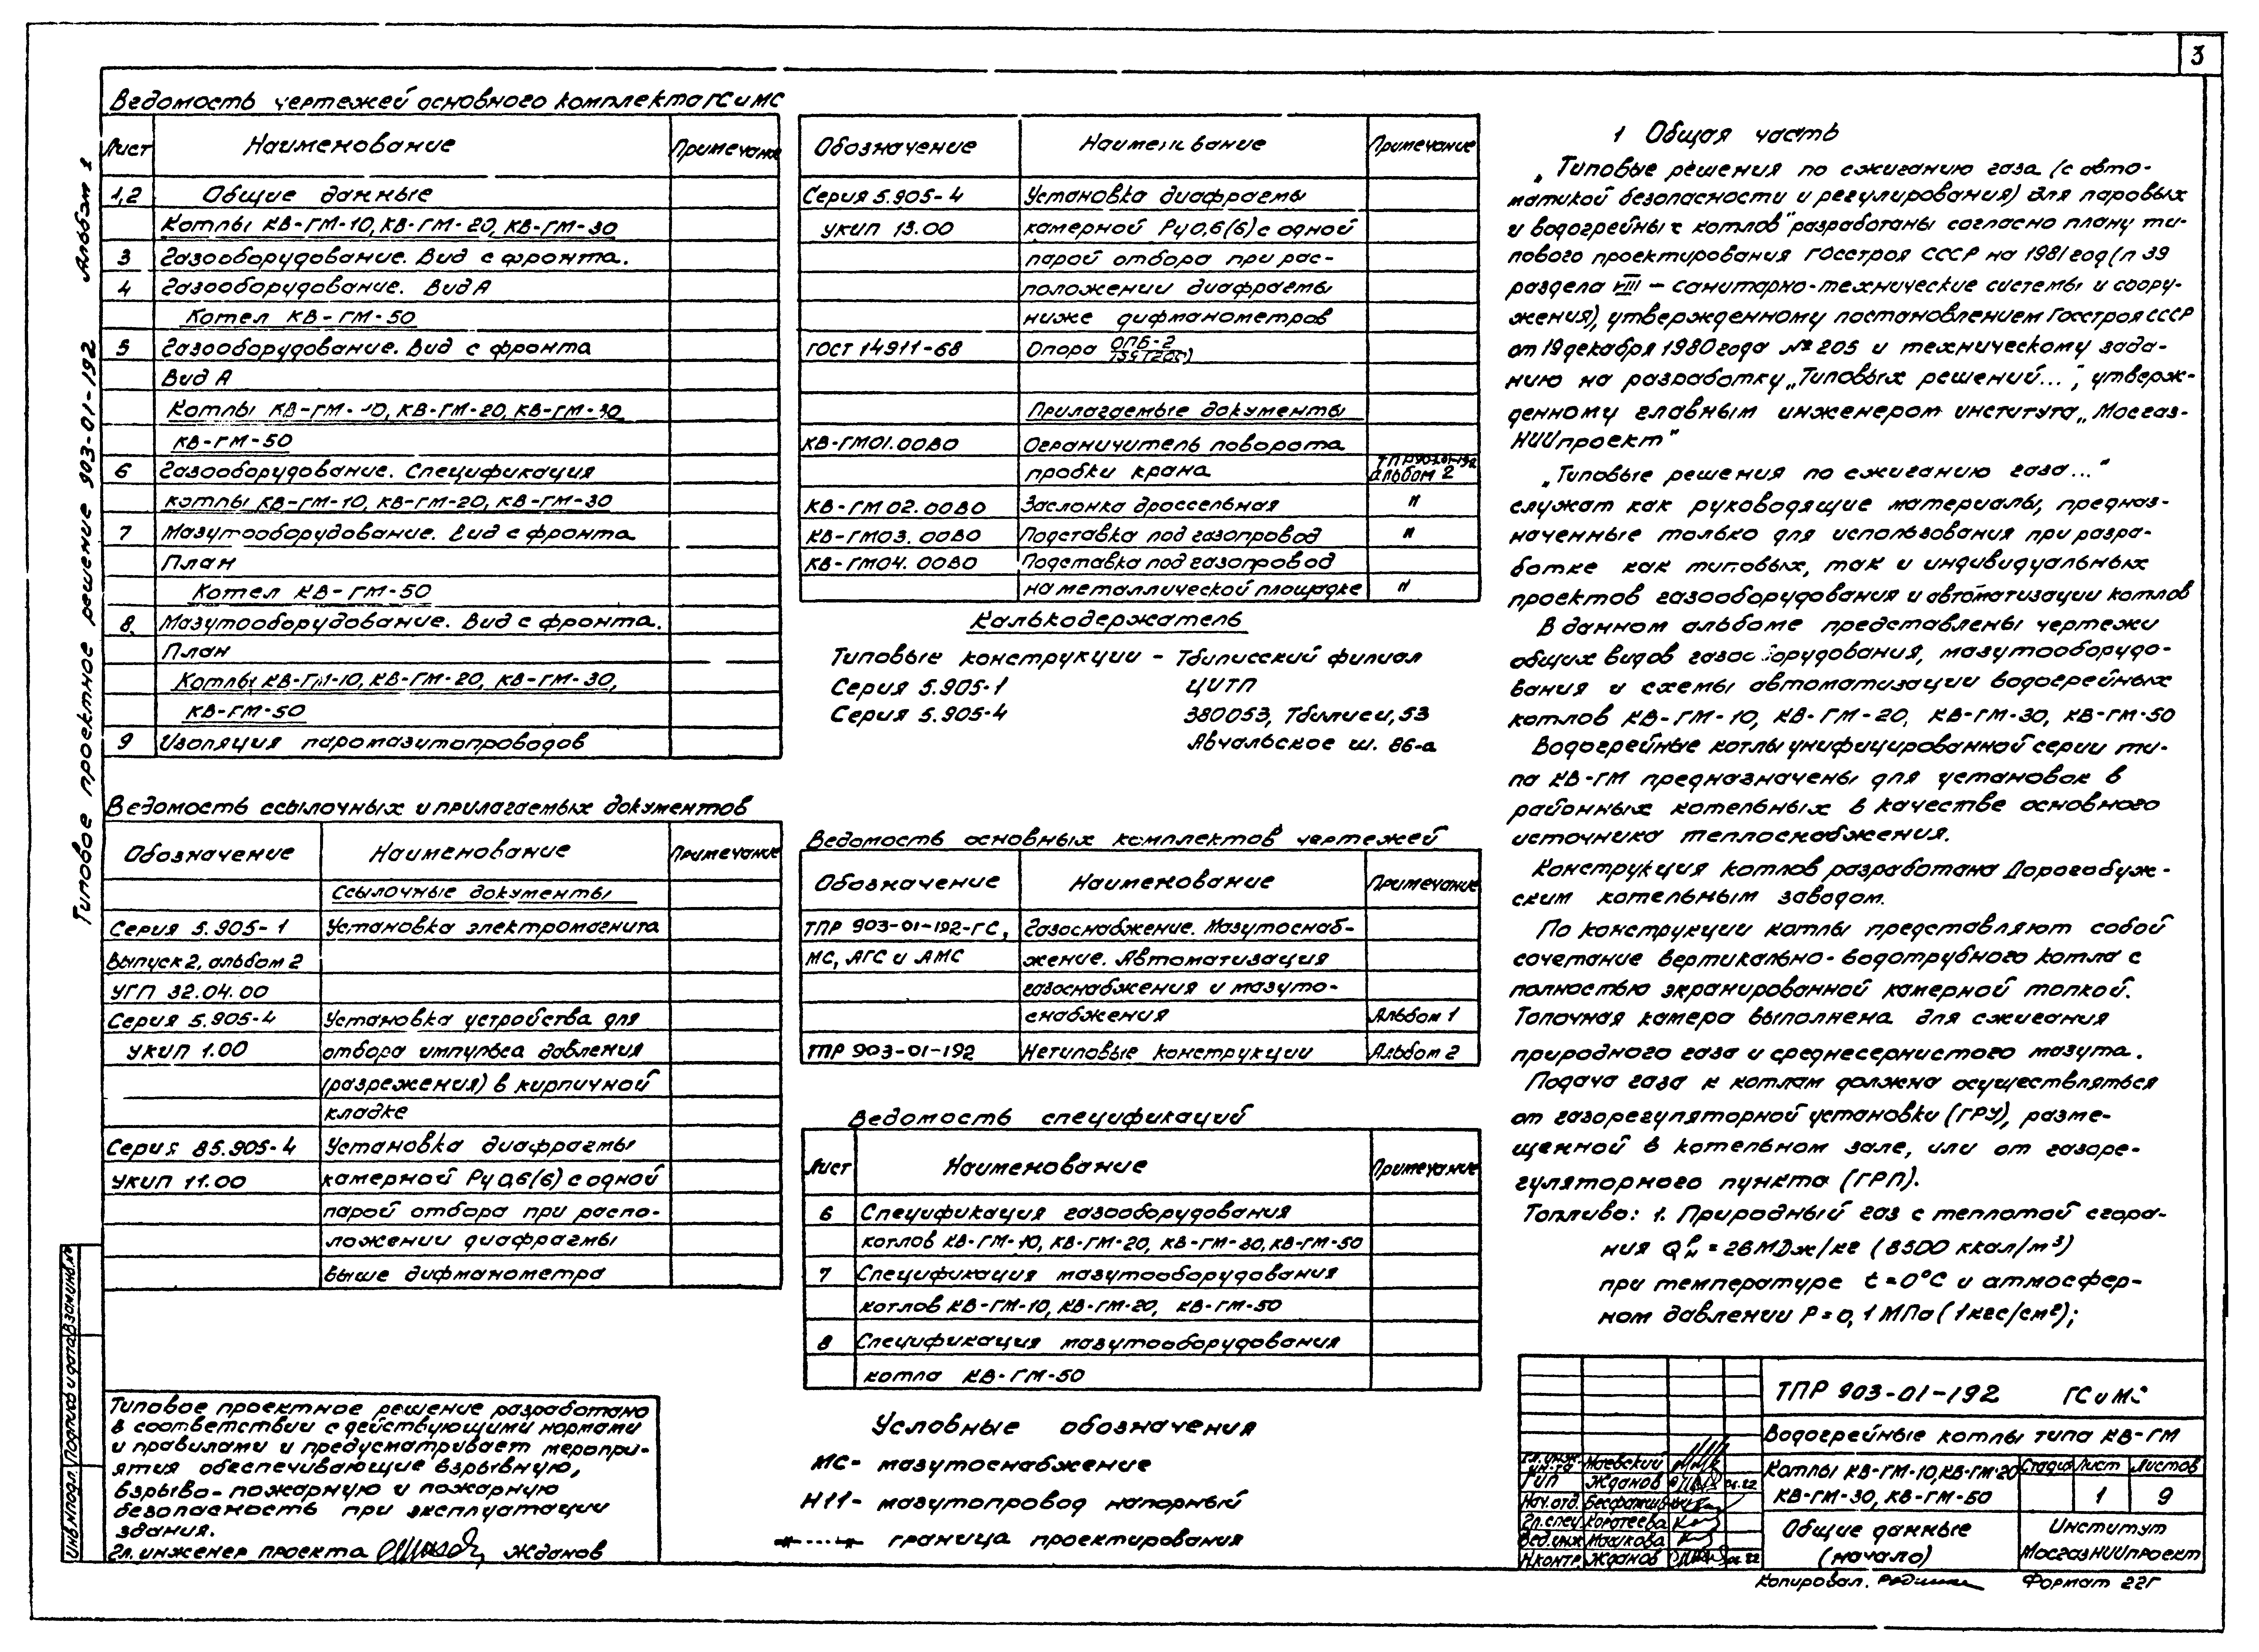 3
Типовое проектное решение 903-01-192 Альбом 1
Ведомость чертежей основного комплекта ГС и МС
Лист Наименование Примечание
1,2 Общие данные
Котлы КВ-ГМ-10, КВ-ГМ-20, КВ-ГМ-30
3 Газооборудование. Вид с фронта.
4 Газооборудование. Вид А
Котел КВ-ГМ-50
5 Газооборудование. Вид с фронта
Вид А
Котлы КВ-ГМ-10, КВ-ГМ-20, КВ-ГМ-30
КВ-ГМ-50
6 Газооборудование. Спецификация
котлы КВ-ГМ-10, КВ-ГМ-20, КВ-ГМ-30
7 Мазутооборудование. Вид с фронта
План
Котел КВ-ГМ-50
8. Мазутооборудование. Вид с фронта.
План
Котлы КВ-ГМ-10, КВ-ГМ-20, КВ-ГМ-30,
КВ-ГМ-50
9 Изоляция паромазутопроводов
Ведомость ссылочных и прилагаемых документов
Обозначение Наименование Примечание
Ссылочные документы
Серия 5.905-1 Установка электромагнита
Выпуск 2, альбом 2
УГП 32.04.00
Серия 5.905-4 Установка устройства для
УКИП 1.00 отбора импульса давления
(разрежения) в кирпичной
кладке
Серия 85.905-4 Установка диафрагмы
УКИП 11.00 камерной Ру 0,6(6) с одной
парой отбора при распо-
ложении диафрагмы
выше дифманометра
Типовое проектное решение разработано
в соответствии с действующими нормами
и правилами и предусматривает меропри-
ятия обеспечивающие взрывную,
взрыво-пожарную и пожарную
безопасность при эксплуатации
здания.
Гл. инженер проекта Жданов
Инв.№подл. Подпись и дата Взам.инв.№
Обозначение Наименование Примечание
Серия 5.905-4 Установка диафрагмы
УКИП 13.00 камерной Ру 0,6(6) с одной
парой отбора при рас-
положении диафрагмы
ниже дифманометров
ГОСТ 14911-68 Опора ОПБ-2
Прилагаемые документы
КВ-ГМ01.00ВО Ограничитель поворота
пробки крана ТПР903-01-192 альбом 2
КВ-ГМ02.00ВО Заслонка дроссельная "
КВ-ГМ03.00ВО Подставка под газопровод "
КВ-ГМ04.00ВО Подставка под газопровод
на металлической площадке "
Калькодержатель
Типовые конструкции - Тбилисский филиал
Серия 5.905-1 ЦИТП
Серия 5.905-4 380053, Тбилиси, 53
Авчальское ш. 86-а
Ведомость основных комплектов чертежей
Обозначение Наименование Примечание
ТПР 903-01-192-ГС, Газоснабжение. Мазутоснаб-
МС, АГС и АМС жение. Автоматизация
газоснабжения и мазуто-
снабжения Альбом 1
ТПР 903-01-192 Нетиповые конструкции Альбом 2
Ведомость спецификаций
Лист Наименование Примечание
6 Спецификация газооборудования
котлов КВ-ГМ-10, КВ-ГМ-20, КВ-ГМ-30, КВ-ГМ-50
7 Спецификация мазутооборудования
котлов КВ-ГМ-10, КВ-ГМ-20, КВ-ГМ-50
8 Спецификация мазутооборудования
котла КВ-ГМ-50
Условные обозначения
МС- мазутоснабжение
- мазутопровод напорный
граница проектирования
1 Общая часть
„Типовые решения по сжиганию газа (с авто-
матикой безопасности и регулирования) для паровых
и водогрейных котлов" разработаны согласно плану ти-
пового проектирования Госстроя СССР на 1981 год (п 39
раздела VIII – санитарно-технические системы и соору-
жения), утвержденному постановлением Госстроя СССР
от 19 декабря 1980 года №205 и техническому зада-
нию на разработку „Типовых решений...", утверж-
денному главным инженером института „Мосгаз-
НИИпроект"
„Типовые решения по сжиганию газа..."
служат как руководящие материалы, предназ-
наченные только для использования при разра-
ботке как типовых, так и индивидуальных
проектов газооборудования и автоматизации котлов
В данном альбоме представлены чертежи
общих видов газооборудования, мазутооборудо-
вания и схемы автоматизации водогрейных
котлов КВ-ГМ-10, КВ-ГМ-20, КВ-ГМ-30, КВ-ГМ-50
Водогрейные котлы унифицированной серии ти-
па КВ-ГМ предназначены для установок в
районных котельных в качестве основного
источника теплоснабжения.
Конструкция котлов разработана Дорогобуж-
ским котельным заводом.
По конструкции котлы представляют собой
сочетание вертикально-водотрубного котла с
полностью экранированной камерной топкой.
Топочная камера выполнена для сжигания
природного газа и среднесернистого мазута.
Подача газа к котлам должна осуществляться
от газорегуляторной установки (ГРУ), разме-
щенной в котельном зале, или от газоре-
гуляторного пункта (ГРП).
Топливо: 1. Природный газ с теплотой сгора-
ния Qрн = 26 МДж/кг (8500 ккал/м³)
при температуре t=0°С и атмосфер-
ном давлении Р=0,1 МПа (1кгс/см²);
ТПР 903-01-192 ГС и МС
Водогрейные котлы типа КВ-ГМ
Гл. инж. ин-та Маевский
ГИП Жданов
Нач.отд.
Гл.спец. Коротеева
Вед.инж Машкова
Н.контр. Жданов
Котлы КВ-ГМ-10, КВ-ГМ-20
КВ-ГМ-30, КВ-ГМ-50
Стадия Лист Листов
1 9
Общие данные
(начало)
Институт
МосгазНИИпроект
Копировал. Формат 22Г